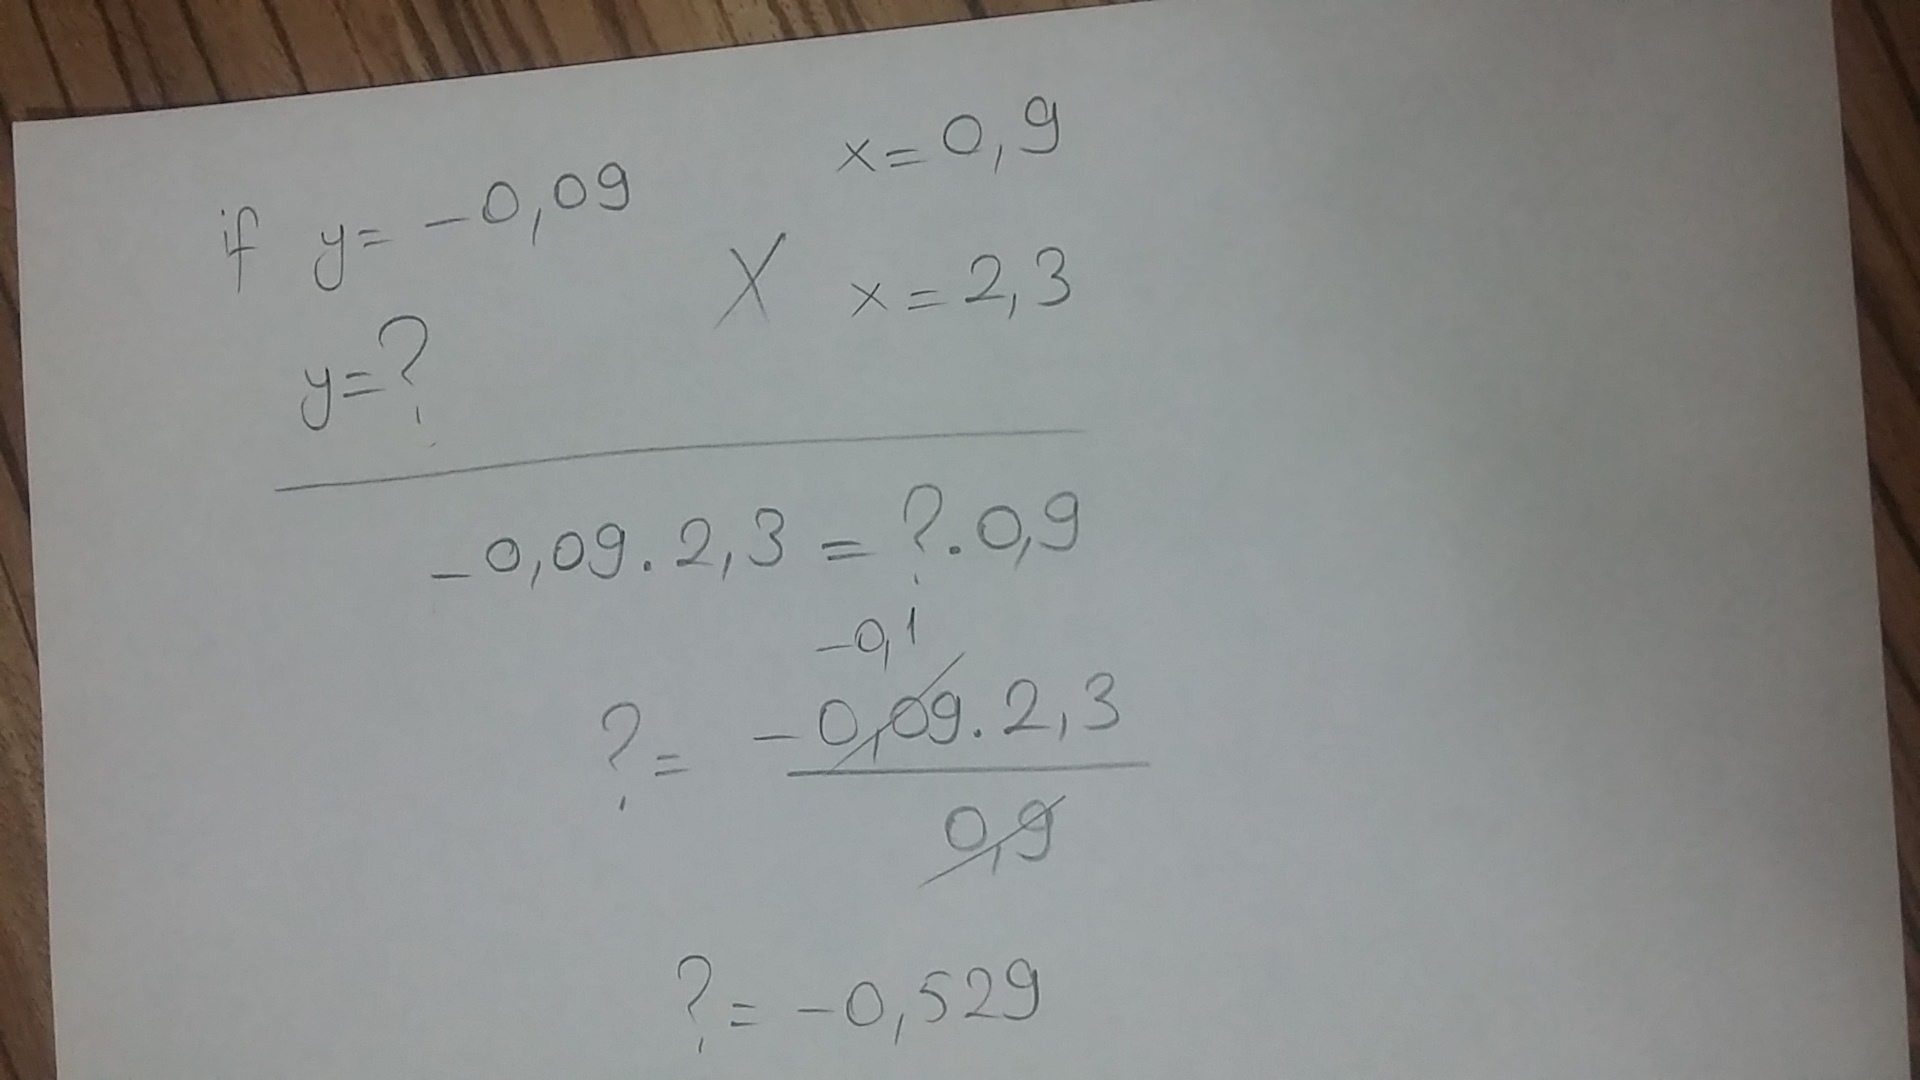 if y = -0,09 x = 0,9
X
y = ? x = 2,3
-0,09 . 2,3 = ? . 0,9
-0,1
? = -0,09 . 2,3
0,9
? = -0,529